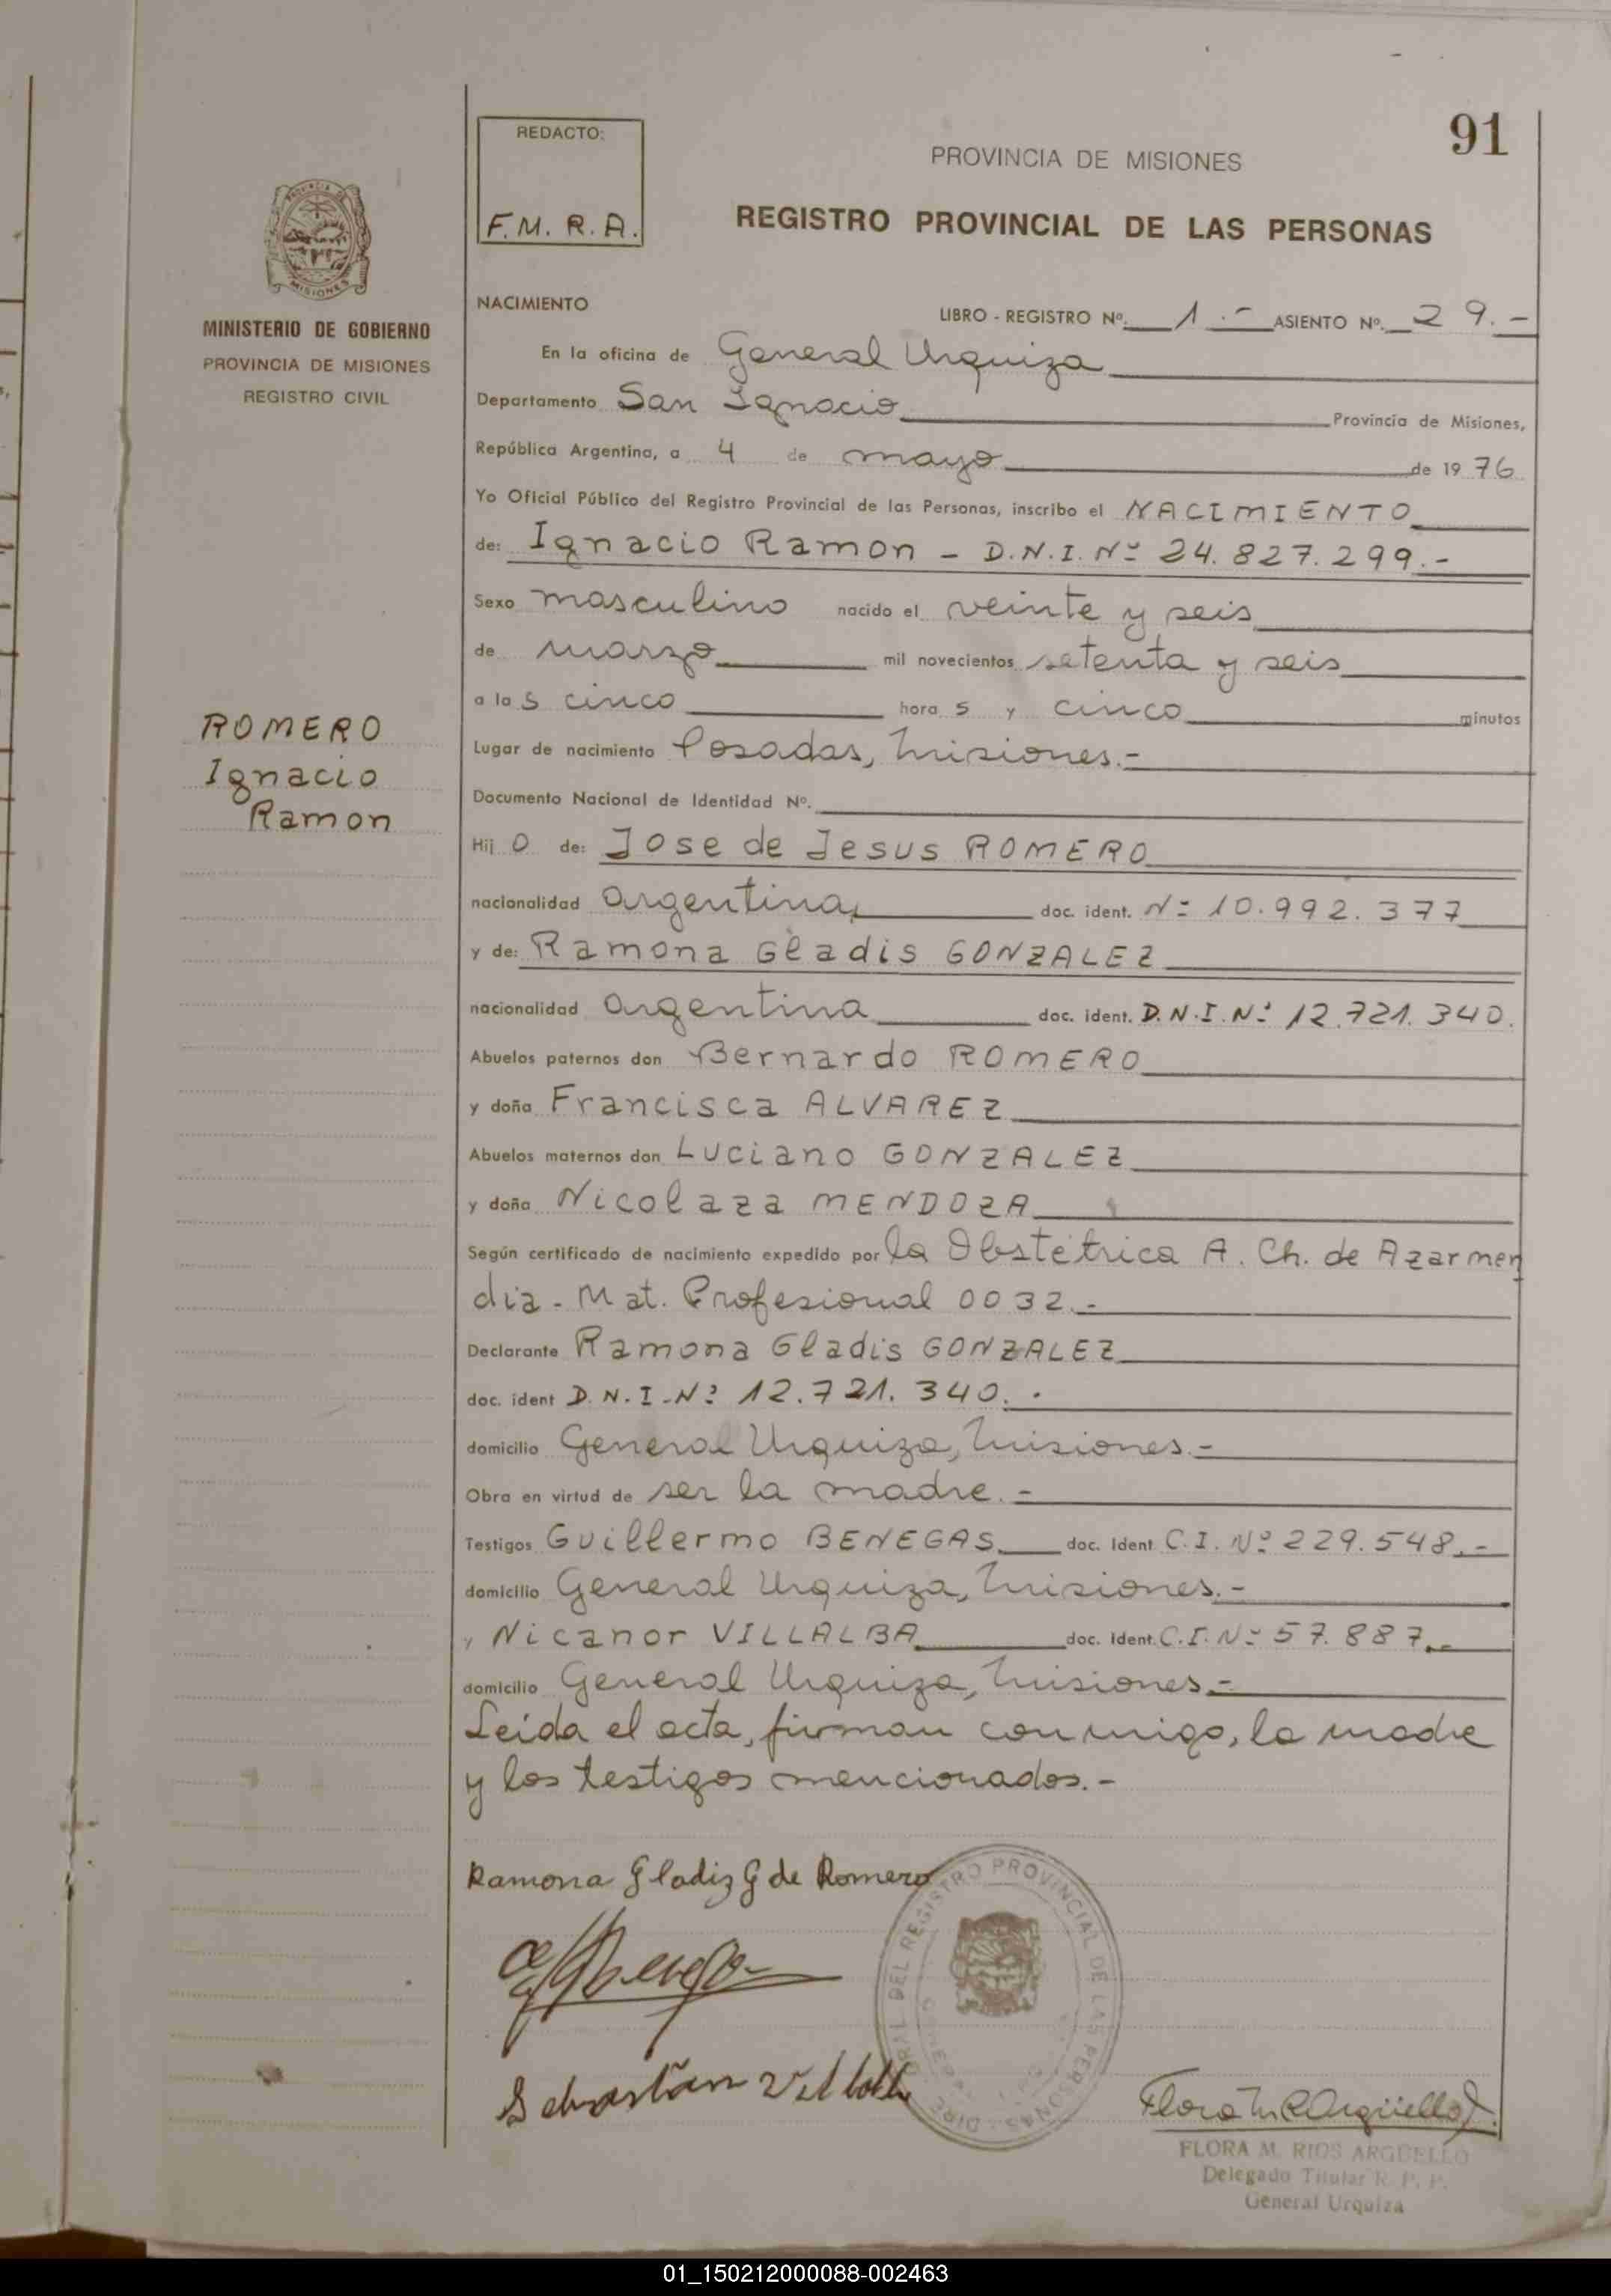 91
REDACTO:
F. M. R. A.
PROVINCIA DE MISIONES
REGISTRO PROVINCIAL DE LAS PERSONAS
PROVINCIA DE
MISIONES
MINISTERIO DE GOBIERNO
PROVINCIA DE MISIONES
REGISTRO CIVIL
ROMERO
Ignacio
Ramon
NACIMIENTO
LIBRO - REGISTRO Nº. 1 .- ASIENTO Nº. 29.-
En la oficina de General Urquiza
Departamento San Ignacio Provincia de Misiones,
República Argentina, a 4 de mayo de 1976
Yo Oficial Público del Registro Provincial de las Personas, inscribo el NACIMIENTO
de: Ignacio Ramon - D.N.I. Nº 24.827.299.-
Sexo masculino nacido el veinte y seis
de marzo mil novecientos setenta y seis
a las cinco horas y cinco minutos
Lugar de nacimiento Posadas, Misiones.-
Documento Nacional de Identidad Nº.
Hijo de: Jose de Jesus ROMERO
nacionalidad argentina doc. ident. Nº 10.992.377
y de: Ramona Gladis GONZALEZ
nacionalidad argentina doc. ident. D.N.I. Nº 12.721.340.
Abuelos paternos don Bernardo ROMERO
y doña Francisca ALVAREZ
Abuelos maternos don Luciano GONZALEZ
y doña Nicolaza MENDOZA
Según certificado de nacimiento expedido por la Obstétrica A. Ch. de Azarmen
dia - Mat. Profesional 0032.-
Declarante Ramona Gladis GONZALEZ
doc. ident D.N.I. Nº 12.721.340. .
domicilio General Urquiza, Misiones.-
Obra en virtud de ser la madre.-
Testigos Guillermo BENEGAS doc. Ident C.I. Nº 229.548.-
domicilio General Urquiza, Misiones.-
y Nicanor VILLALBA doc. Ident. C.I. Nº 57.887.-
domicilio General Urquiza, Misiones.-
Leída el acta, firman conmigo, la madre
y los testigos mencionados.-
Ramona Gladiz G de Romero
DEL REGISTRO PROVINCIAL DE LAS PERSONAS
FLORA M. RIOS ARGÜELLO
Delegado Titular R. P. P.
General Urquiza
01_150212000088-002463